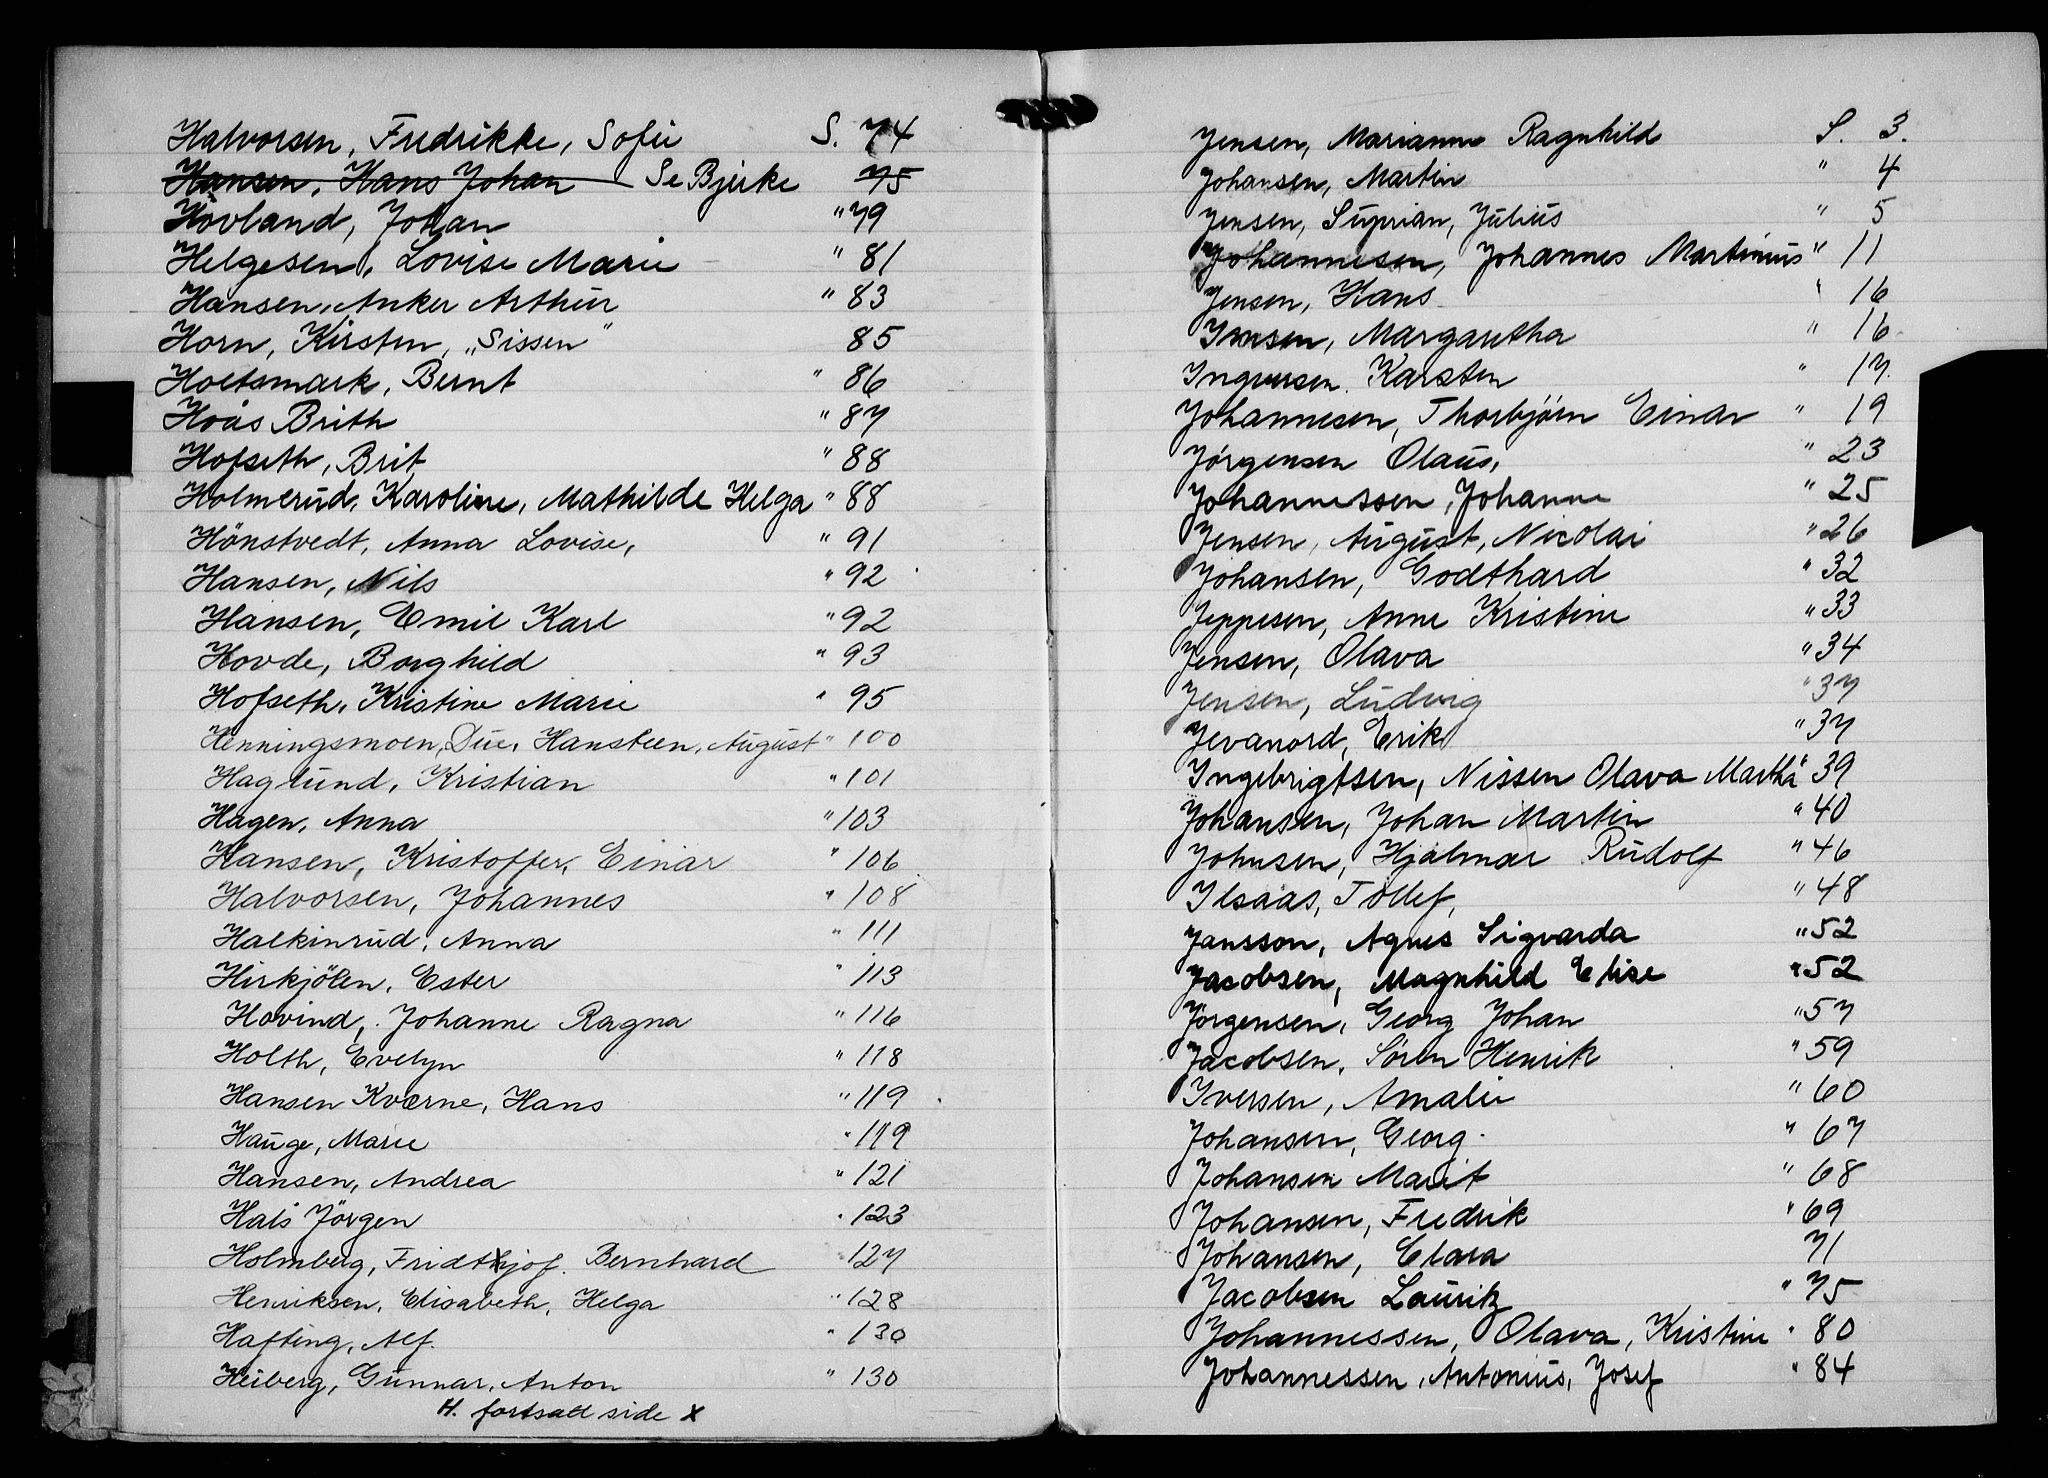 Halvorsen, Fredrikke, Sofie S. 74
Hansen, Hans Johan Se Bjerke 75
Hovland, Johan " 79
Helgesen, Lovise Marie " 81
Hansen, Anker Arthur " 83
Horn, Kirsten, „Sissen" 85
Holtsmark, Bernt " 86
Hoås Brith " 87
Hofseth, Brit " 88
Holmerud, Karoline, Mathilde Helga " 88
Hönstvedt, Anna Lovise, " 91
Hansen, Nils " 92
Hansen, Emil Karl " 92
Hovde, Borghild " 93
Hofseth, Kristine Marie " 95
Henningsmoen, Due, Hansteen, August " 100
Haglund, Kristian " 101
Hagen, Anna " 103
Hansen, Kristoffer, Einar " 106
Halvorsen, Johannes " 108
Halkinrud, Anna " 111
Hirkjölen, Ester " 113
Hovind, Johanne Ragna " 116
Holth, Evelyn " 118
Hansen Kværne, Hans " 119
Hauge, Marie " 119
Hansen, Andrea " 121
Hals Jörgen " 123
Holmberg, Fridtkjof. Bernhard " 127
Henriksen, Elisabeth, Helga " 128
Hafting, Alf. " 130
Heiberg, Gunnar, Anton " 130
H. fortsatt side X
Jensen, Marianne Ragnhild S. 3.
Johansen, Martin " 4
Jensen, Suprian, Julius " 5
Johannesen, Johannes Martinius " 11
Jensen, Hans " 16
Jensen, Margaretha " 16
Ingversen, Karsten " 17.
Johannesen, Thorbjörn Einar " 19
Jörgensen Olaus, " 23
Johannessen, Johanne " 25
Jensen, August, Nicolai " 26
Johansen, Godthard " 32
Jeppesen, Anne Kristine " 33
Jensen, Olava " 34
Jensen, Ludvig " 37
Jevanord, Erik " 37
Ingebrigtsen, Nissen Olava Martha " 39
Johansen, Johan Martin " 40
Johnsen, Hjalmar Rudolf " 46
Ilsaas, Tollef, " 48
Jansson, Agnes Sigvarda " 52
Jacobsen, Magnhild Elise " 52
Jörgensen, Georg Johan " 57
Jacobsen, Sören Henrik " 59
Iversen, Amalie " 60
Johansen, Georg. " 67
Johansen Marit " 68
Johansen, Fredrik " 69
Johansen, Clara 71
Jacobsen Lauritz " 75
Johannessen, Olava, Kristine " 80
Johannessen, Antonius, Josef " 84